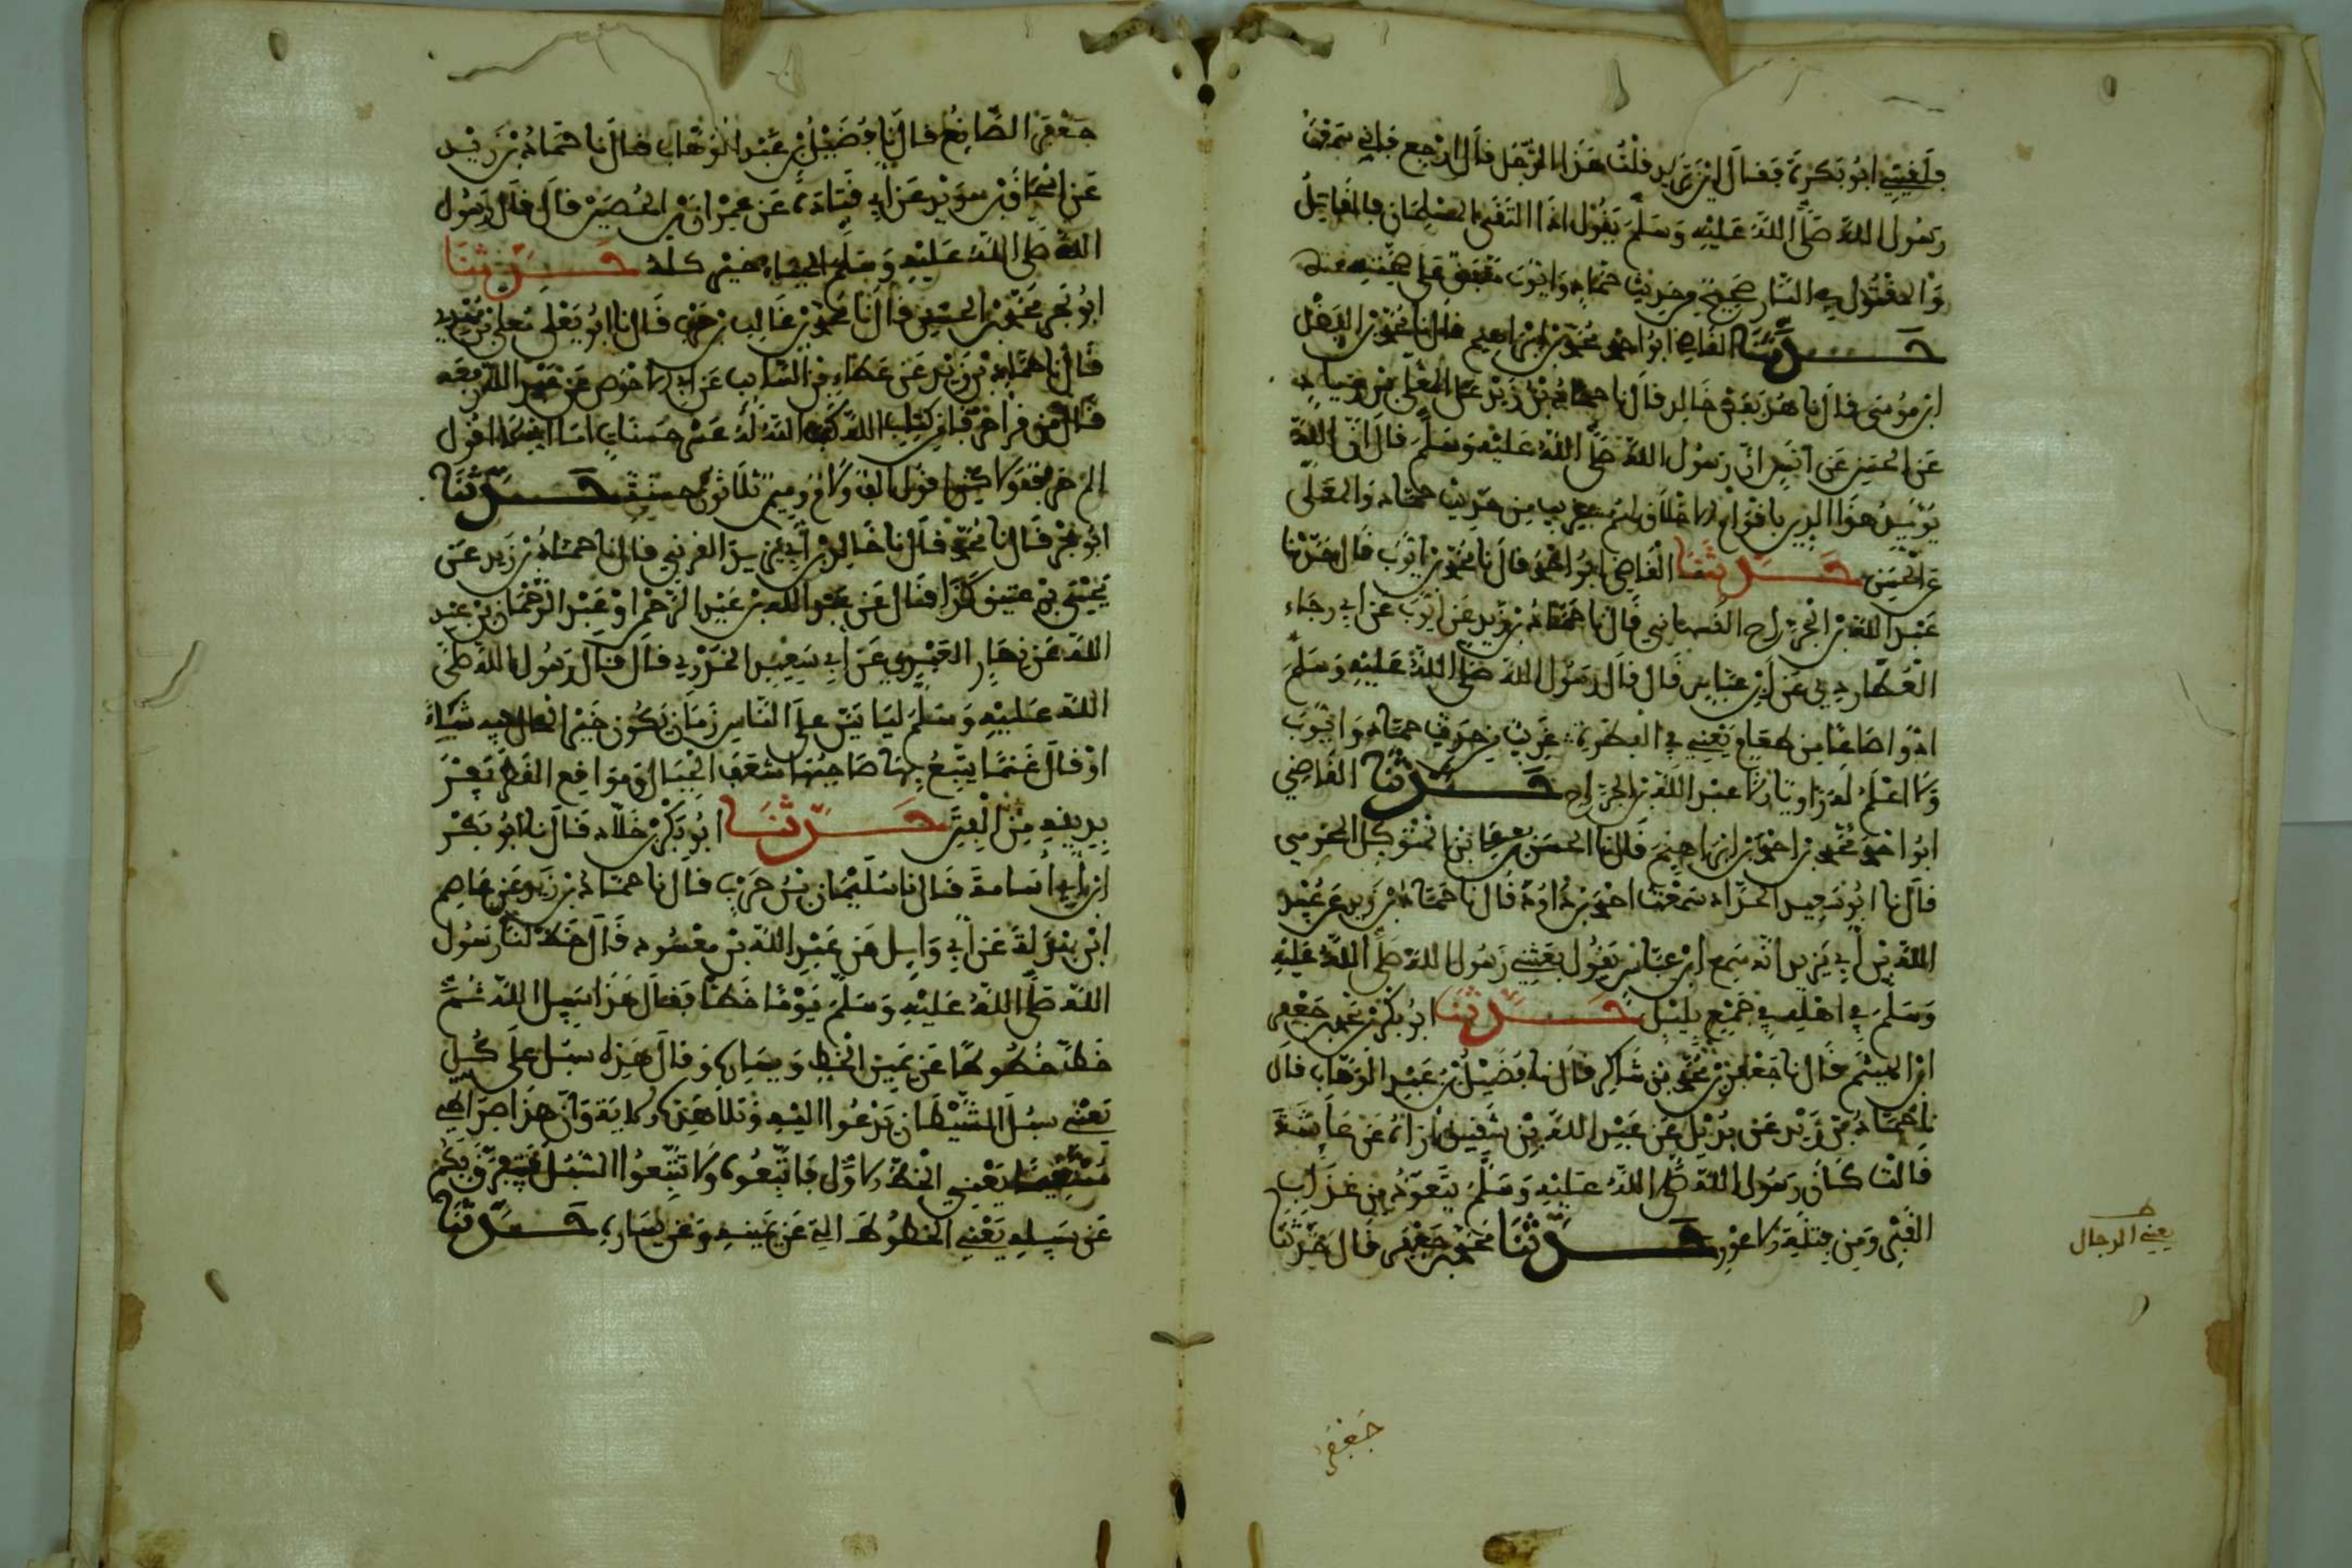 فلقيني ابو بكرة فقال اين تريد فلت هذا الرجل فال ارجع فاني سمعت
رسول الله صلى الله عليه وسلم يقول اذا التقى المسلمان فالقاتل
والمقتول في النار صحيح من حديث حماد وايوب متفق على
حدثنا القاضي ابو احمد محمد بن ابراهيم قال نا محمد بن الفضل
ابن موسى قال نا هدبة بن خالد قال نا حماد بن زيد عن المعلى بن زياد
عن الحسن عن انس ان رسول الله صلى الله عليه وسلم قال ان الله
يؤيد هذا الدين باقوام لا خلاق لهم غريب من حديث حماد والمعلى
عن الحسن حدثنا القاضي ابو احمد قال نا محمد بن ايوب قال حدثنا
عبد الله بن الجراح القهستاني قال نا حماد بن زيد عن ايوب عن ابي رجاء
العطاردي عن ابن عباس قال قال رسول الله صلى الله عليه وسلم
ادوا صاعا من طعام يعني في الفطرة غريب من حديث حماد وايوب
ولا اعلم له راويا الا عبد الله بن الجراح حدثنا القاضي
ابو احمد محمد بن احمد بن ابراهيم قال نا الحسن بن
قال نا ابو سعيد الحداد سمعت احمد بن داود قال نا حماد بن زيد عن عبيد
الله بن ابي يزيد انه سمع ابن عباس يقول بعثني رسول الله صلى الله عليه
وسلم في اهله في جمع بليل حدثنا ابو بكر محمد بن جعفر
ابن الهيثم قال نا جعفر بن محمد بن شاكر قال نا فضيل بن عبد الوهاب قال
نا حماد بن زيد عن بديل عن عبد الله بن شقيق ان عن عائشة
قالت كان رسول الله صلى الله عليه وسلم يتعوذ من عذاب
القبر ومن فتنة الاعور حدثنا محمد بن جعفر قال حدثنا
يعني الدجال
جعفر
جعفر الصائغ قال نا فضيل بن عبد الوهاب قال نا حماد بن زيد
عن اسحاق بن سويد عن ابي قتادة عن عمران بن الحصين قال قال رسول
الله صلى الله عليه وسلم الحياء خير كله حدثنا
ابو بحر محمد بن الحسن قال نا محمد بن غالب بن حرب قال نا ابو يعلى معلى بن مهدي
قال نا حماد بن زيد عن عطاء بن السائب عن ابي الاحوص عن عبد الله رفعه
قال من قرا حرفا من كتاب الله كتب الله له عشر حسنات اما اني لا اقول
الم حرف ولكن اقول الف ولام وميم ثلاثون حسنة حدثنا
ابو بحر قال نا محمد قال نا خالد بن ابي يزيد القرني قال نا حماد بن زيد عن
يحيى بن عتيق كذا قال عن عبد الله بن عبد الرحمن او عبد الرحمان بن عبد
الله عن نهار العبدي عن ابي سعيد الخدري قال قال رسول الله صلى
الله عليه وسلم لياتين على الناس زمان يكون خير المال فيه شاء
او قال غنما يتبع بها صاحبها شعف الجبال ومواقع القطر يفر
بدينه من الفتن حدثنا ابو بكر بن خلاد قال نا ابو بكر
ابن ابي اسامة قال نا سليمان بن حرب قال نا حماد بن زيد عن عاصم
ابن بهدلة عن ابي وايل عن عبد الله بن مسعود قال خط لنا رسول
الله صلى الله عليه وسلم يوما خطا فقال هذا سبيل الله ثم
خط خطوطا عن يمين الخط ويساره وقال هذه سبل على كل
يعني سبل الشيطان يدعوا اليه وتلا هذه الاية وان هذا صراطي
مستقيما يعني الخط الاول فاتبعوه ولا تتبعوا السبل فتفرق بكم
عن سبيله يعني الخطوط التي عن يمينه وعن يساره حدثنا